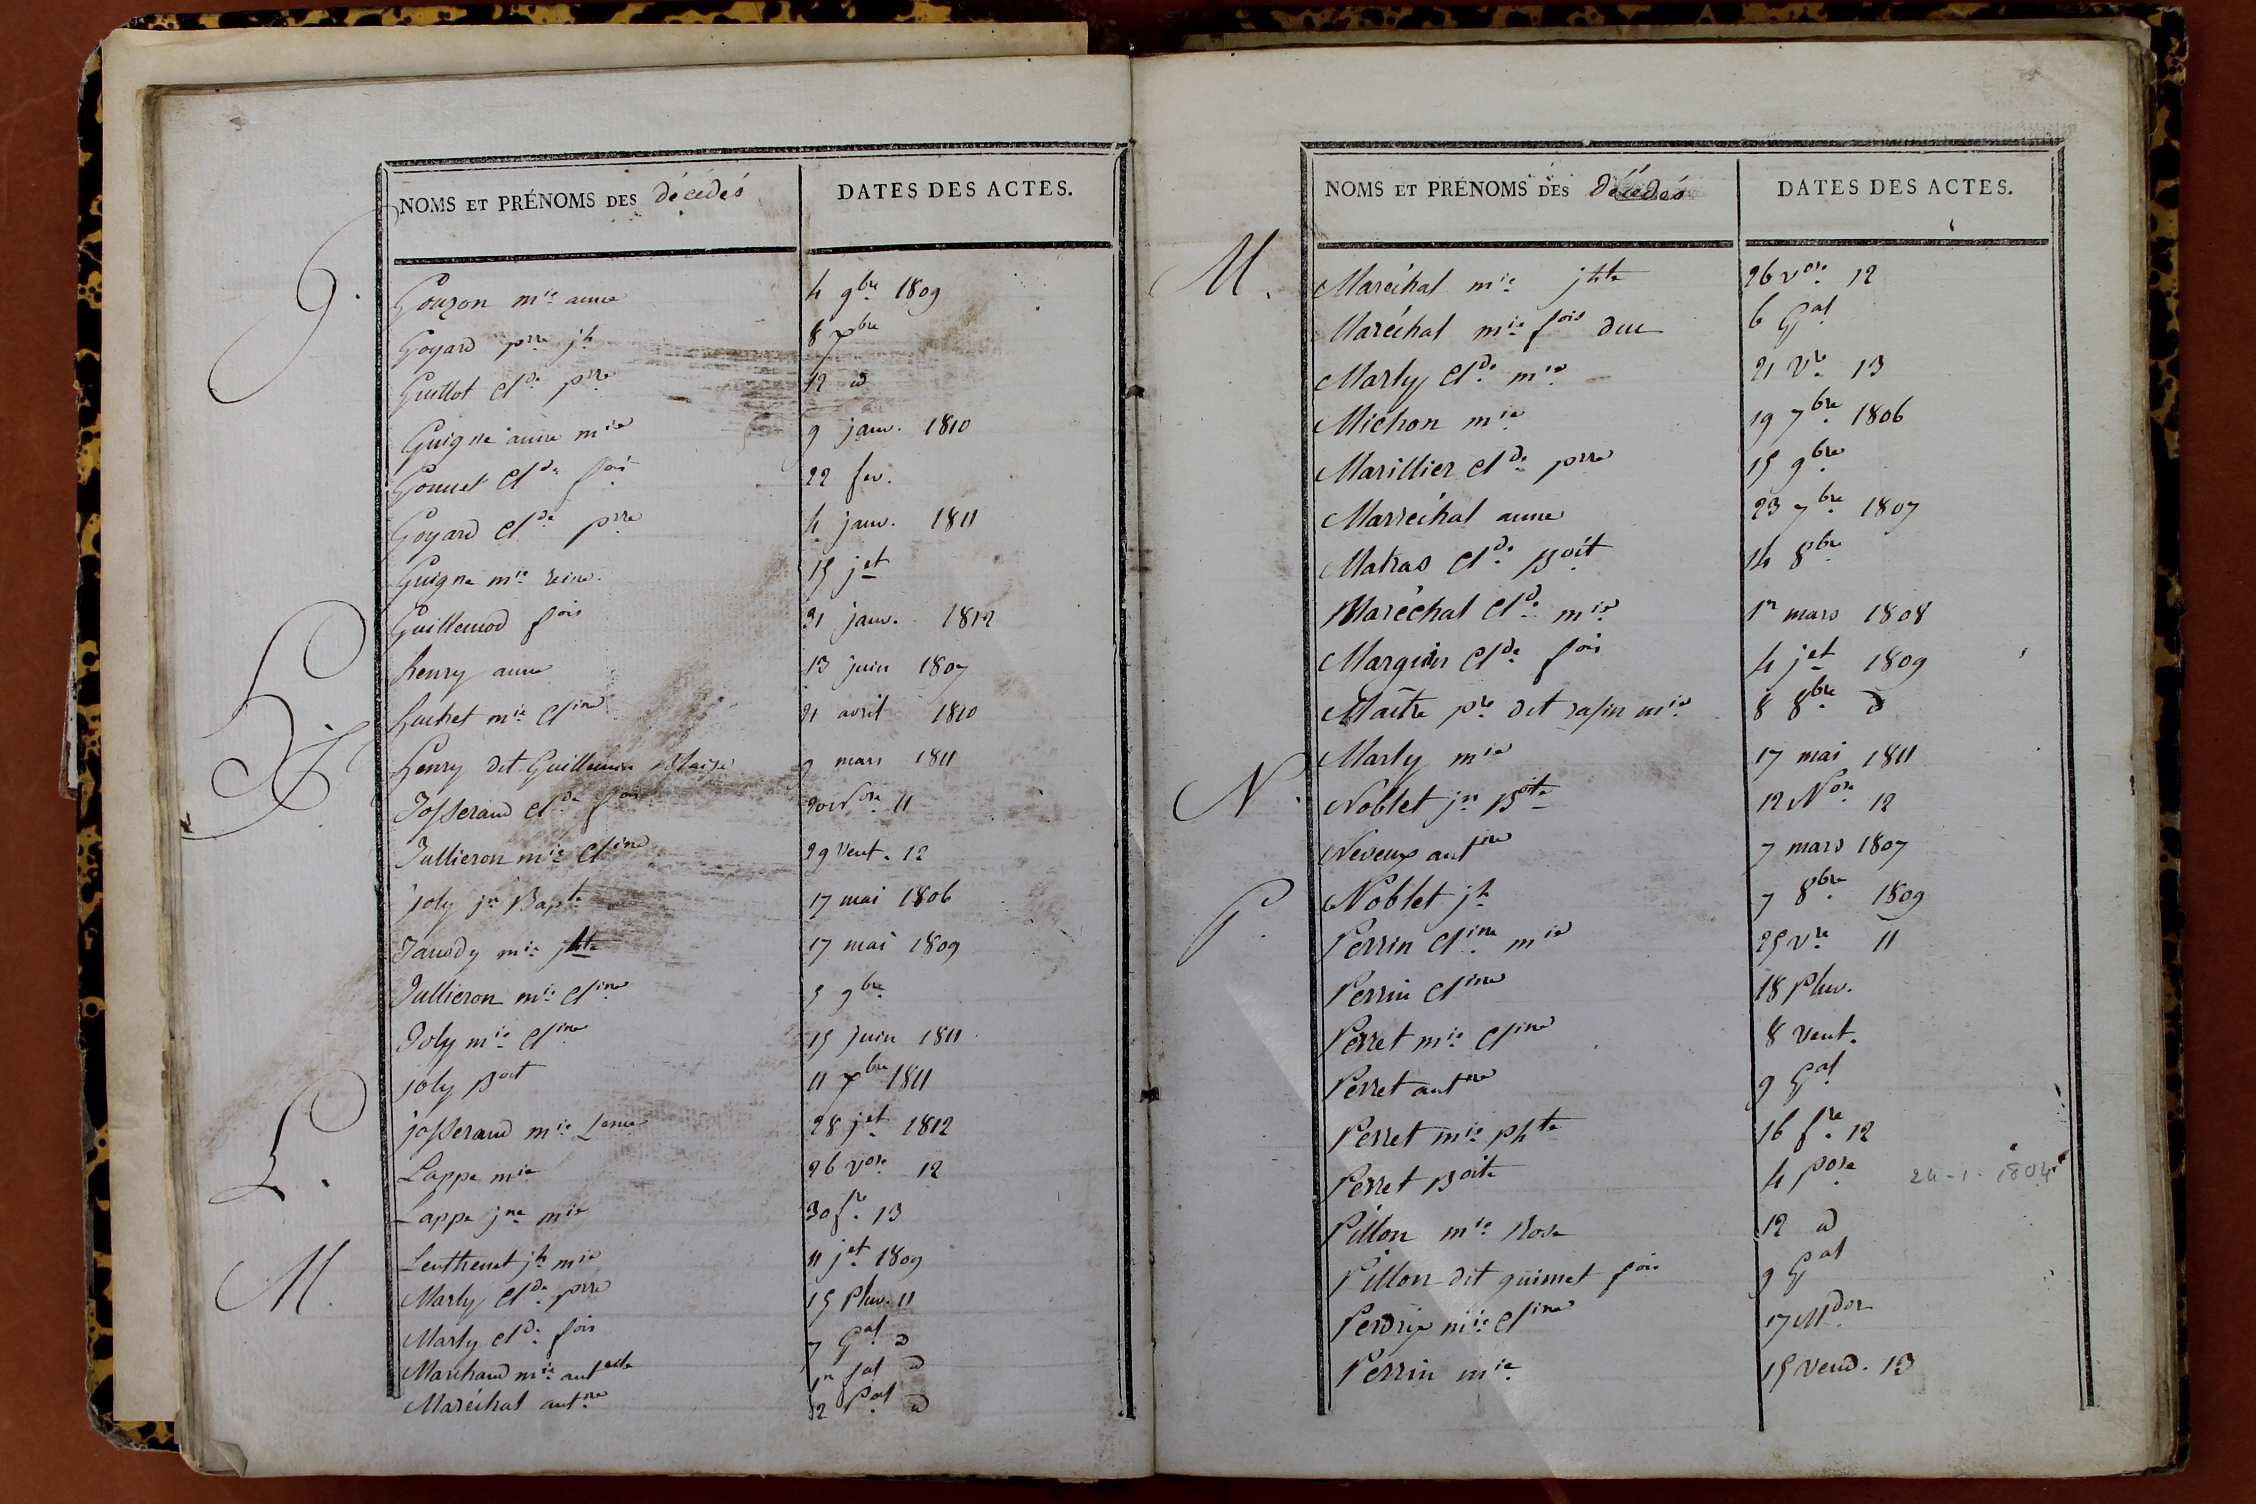 NOMS ET PRÉNOMS DES décédés
DATES DES ACTES.
G.
Gouzon mie anne 4 9bre 1809
Goyard prre jh 8 xbre
Guillot Clde prre 12 d
Guigne anne mie 9 janv. 1810
Gonnet Clde fois 22 fev.
Goyard Clde prre 4 janv. 1811
Guigne mie reine 15 jet
Guillemod fois 21 janv. 1812
H.
henry anne 13 juin 1807
huchet mie Cline 21 avril 1810
henry dit Guillemin Blaise 9 mars 1811
J.
Josserand Clde fois 11
Jullieron mie Cline 29 Vent. 12
joly jn Bapte 17 mai 1806
Jandy mie jhte 17 mai 1809
Jullieron mie Cline 5 9bre
Joly mie Cline 15 juin 1811
joly Boit 11 xbre 1811
josserand mie 28 jet 1812
L.
Lappe mie 26 vose 12
Lappe jne mie 30 fre 13
Leuthenet jh mie 11 jet 1809
M.
Marly Clde prre 15 Pluv. 11
Marly Clde fois 7 Gal d
Marchand mie 1er d
Maréchal antne 12 d
NOMS ET PRÉNOMS DES décédés
DATES DES ACTES.
M.
Maréchal mie jhte 26 vose 12
Maréchal mie fois duc 6 Gal
Marly Clde mie 21 Vre 13
Michon mie 19 7bre 1806
Marillier Clde prre 15 9bre
Marréchal anne 23 7bre 1807
Matras Clde Boit 14 8bre
Maréchal Clde mie 1er mars 1808
Marguin Clde fois 4 jet 1809
Maître pre dit mie 8 8bre d
Marly mie 17 mai 1811
N.
Noblet jn Bte 12 Nose 12
Neveux antne 7 mars 1807
Noblet jh 7 8bre 1809
P.
Perrin Cline mie 25 Vre 11
Perrin Cline 18 Pluv.
Perret mie Cline 8 Vent.
Perret antne 9 Gal
Perret mie phte 16 fre 12
Perret Boite 4 pose 24-1-1804
Pillon mie Rose 12 d
Pillon dit guimet fois 9 Gal
Perdrix mie Cline 17 Mdor
Perrin mie 15 Vend. 13